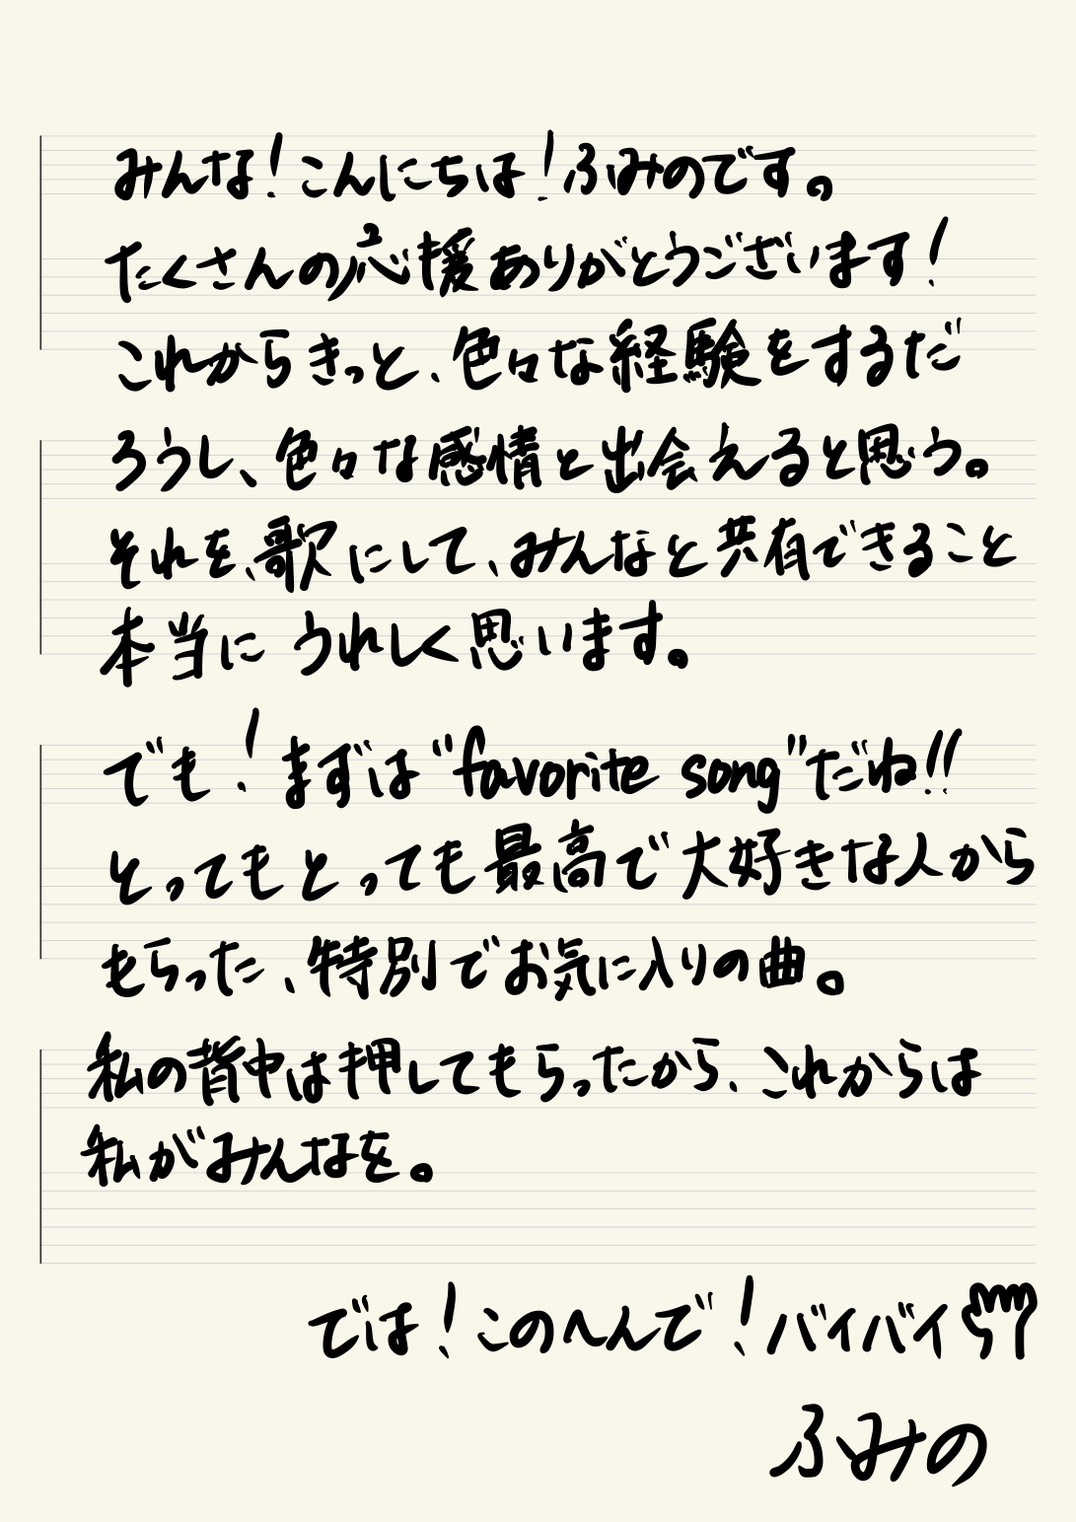 みんな!こんにちは!ふみのです。
たくさんの応援ありがとうございます!
これからきっと、色々な経験をするだ
ろうし、色々な感情と出会えると思う。
それを、歌にして、みんなと共有できること
本当に うれしく思います。
でも!まずは“favorite song”だね!!
とってもとっても最高で大好きな人から
もらった、特別でお気に入りの曲。
私の背中は押してもらったから、これからは
私がみんなを。
では!このへんで!バイバイ
ふみの